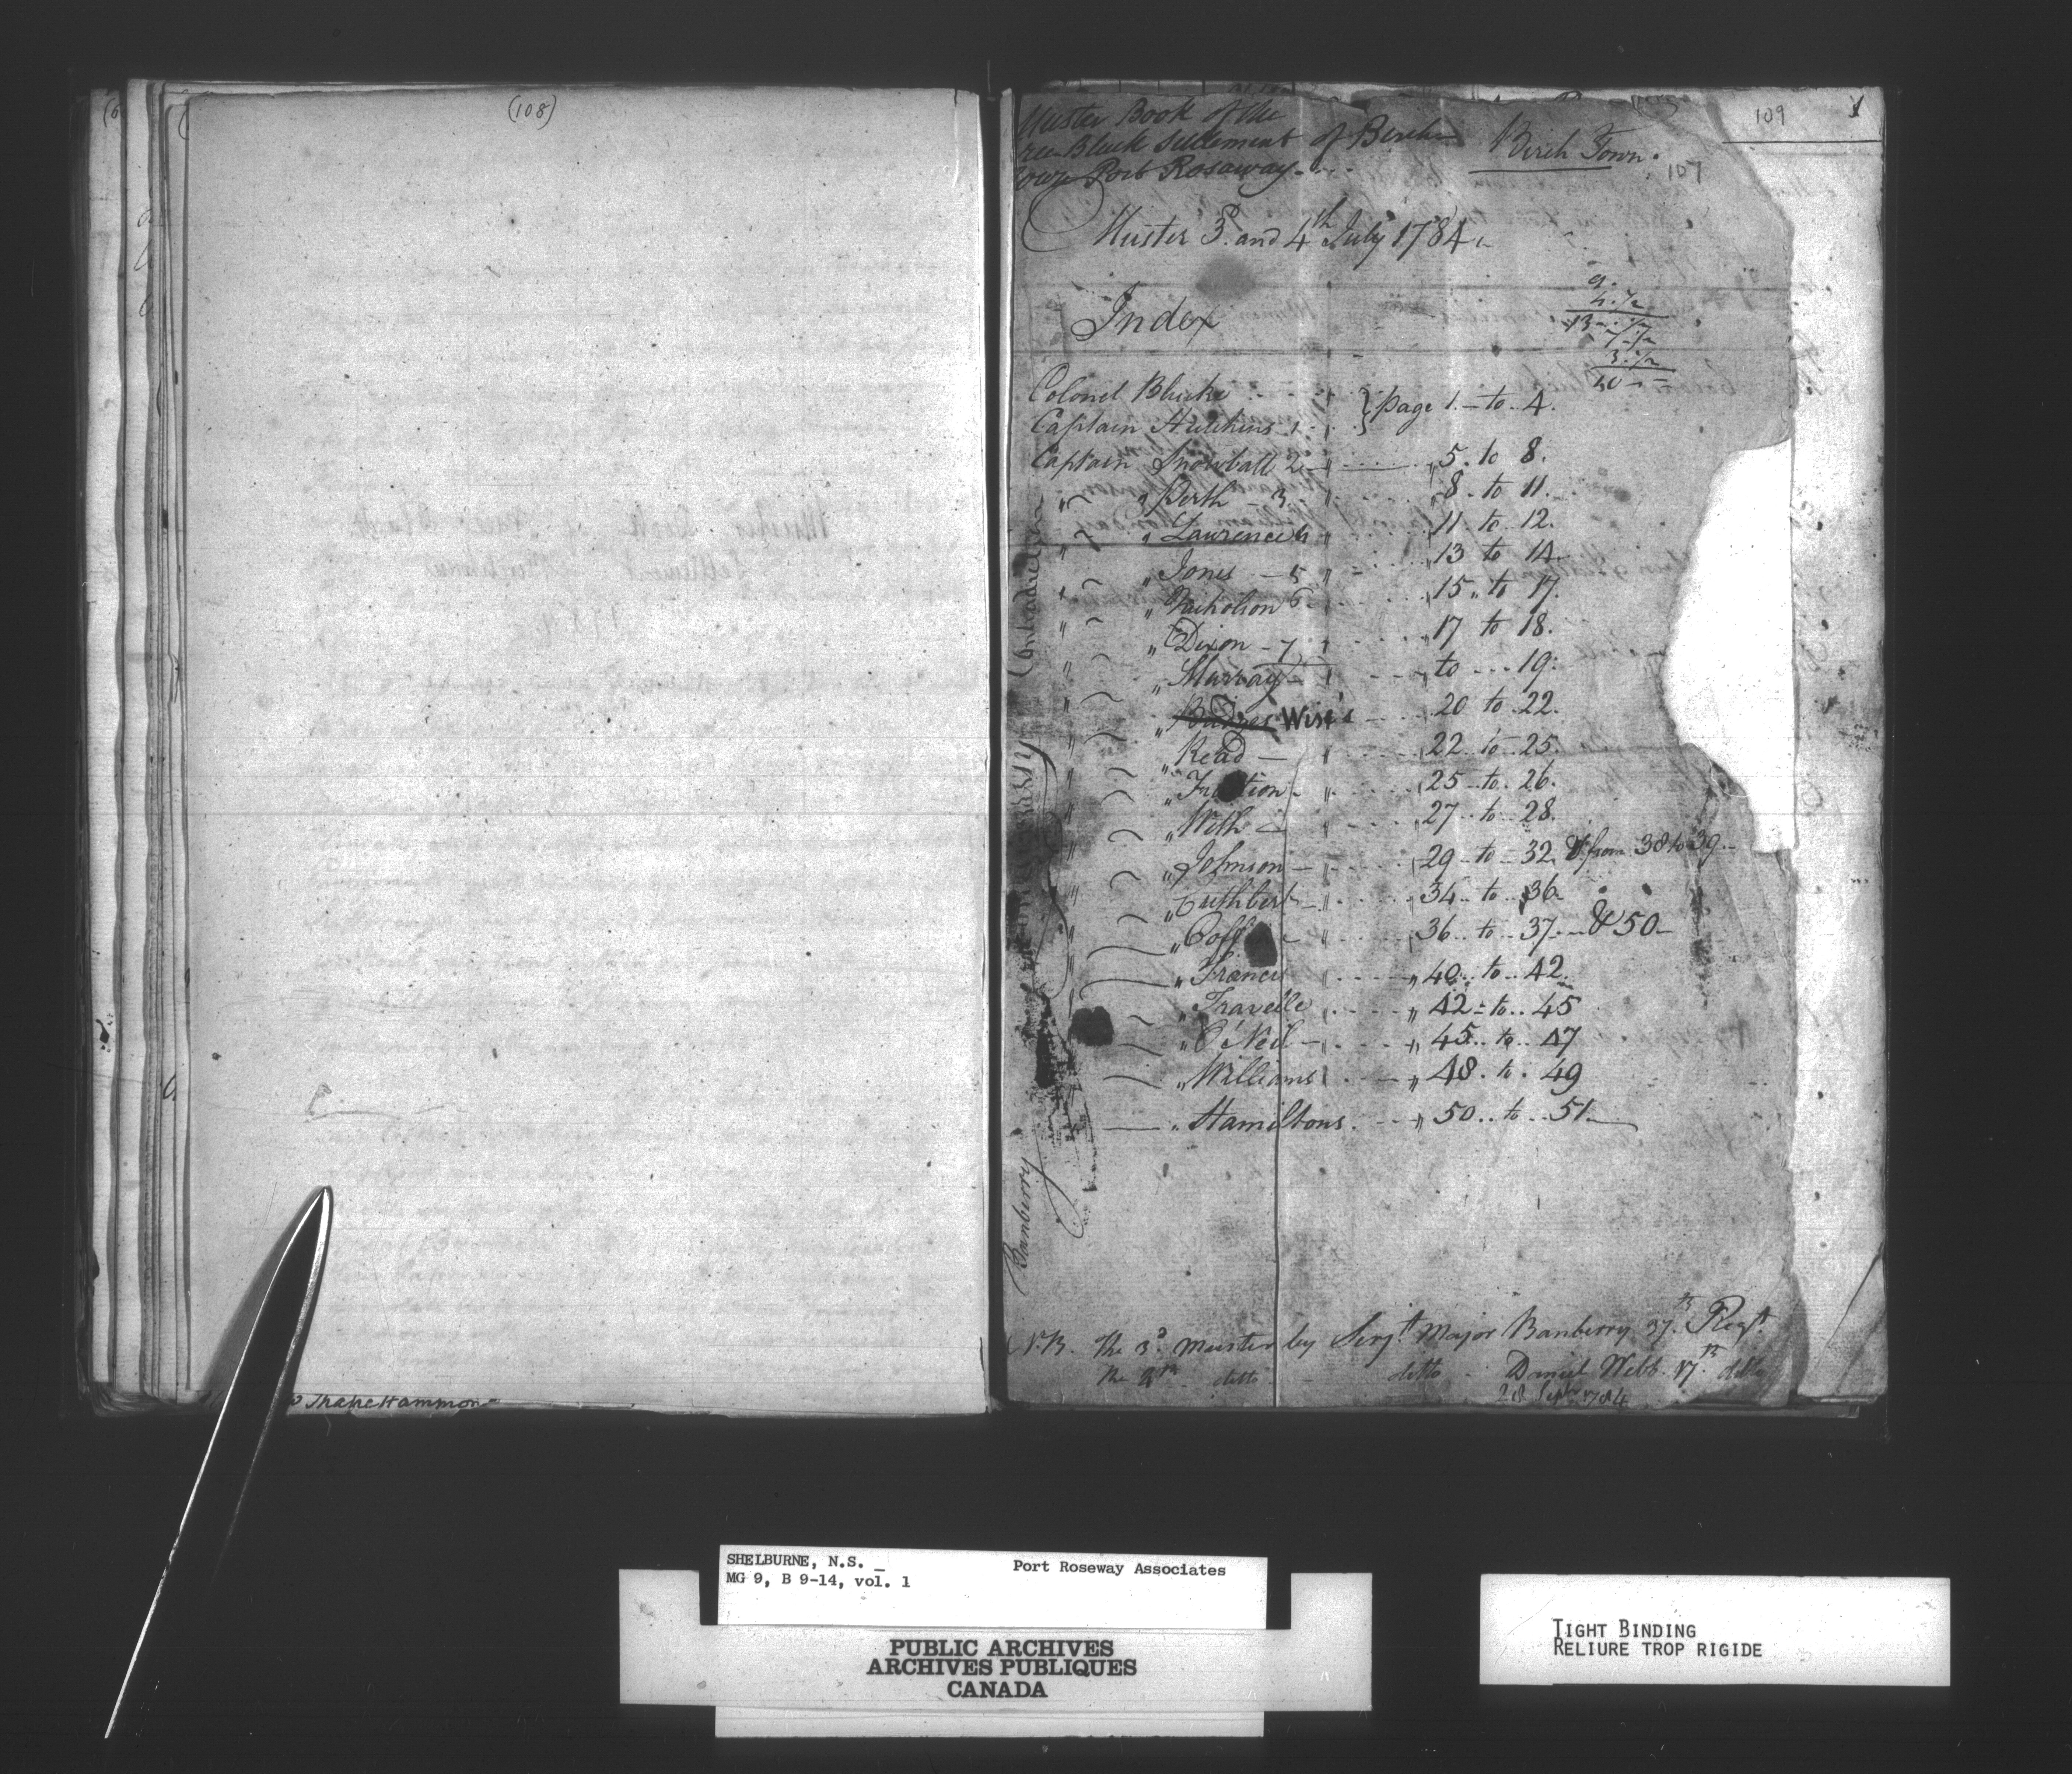 (108)
Muster Book of the
Free Black Settlement of Birch
Town Port Rosaway
Birch Town.
109
1
107
Muster 3d. and 4th July 1784
Index
9.
4.½
13-.½
7.½
3.½
Colonel Blucke
Captain Hutchins 1 } page 1. to 4.
Captain Snowball 2 5. to 8.
" " Perth - 3 8. to 11.
" " Lawrence 4 11 to 12.
" " Jones - 5 13 to 14
" " Nicholson 6 15 to 17.
" " Dixon - 7 17 to 18.
" " Murray to 19.
" " Wise 20 to 22.
" " Read 22. to 25.
" " 25 to 26.
" " 27 to 28.
" " Johnson 29 to 32 & from 38 to 39
" " Cuthbert 34 to 36
" " Coff 36 to 37 & 50
" " Francis 40 to 42.
" " Travelle 42 to 45
" " O'Neil 45 to 47
" " Williams 48 to 49
" Hamiltons 50 to 51
Banberry
N.B. the 3d. muster by Serjt. Major Banberry 37th Regt.
the 4th ditto ditto Daniel Webb 17th ditto
28 Sepr 1784
Muster Book of Free Black
Settlement of Birchtown
1784
Hammon
SHELBURNE, N.S. Port Roseway Associates
MG 9, B 9-14, vol. 1
PUBLIC ARCHIVES
ARCHIVES PUBLIQUES
CANADA
TIGHT BINDING
RELIURE TROP RIGIDE